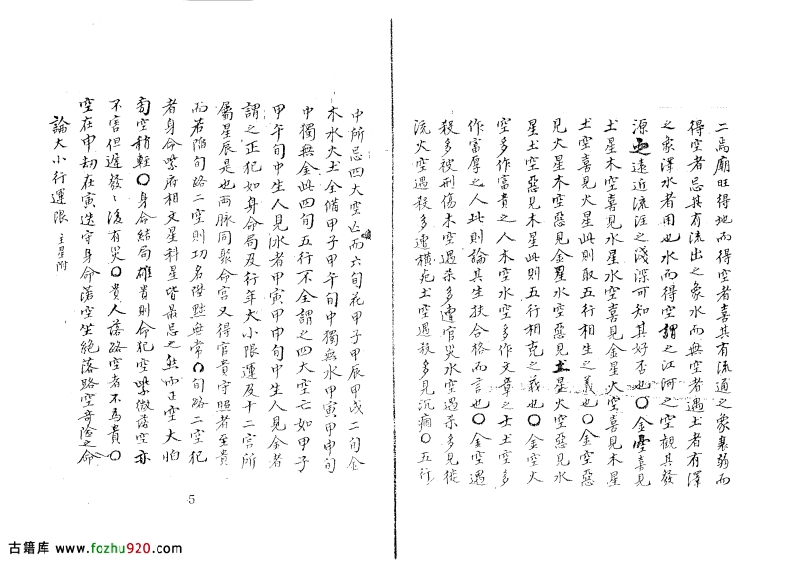 二為廟旺得地而得空者喜其有流通之象衰弱而
得空者忌其有流出之象水而無空者遇土者有澤
之象澤水者用也水而得空謂之江河之空觀其發
源遠近流注之淺深可知其好否也〇金空喜見
土星木空喜見水星水空喜見金星火空喜見木星
土空喜見火星此則取五行相生之義也〇金空惡
見火星木空惡見金星水空惡見土星火空惡見水
星土空惡見木星此則五行相克之義也〇金空火
空多作富貴之人木空水空多作文章之士土空多
作富厚之人此則論其生扶合格而言也〇金空遇
殺多被刑傷木空遇杀多遭官災水空遇杀多見徙
流火空遇殺多遭橫死土空遇殺多見沉痼〇五行
中所忌四大空亡而六旬花甲子甲辰甲戌二旬金
木水火土全備甲子甲午旬中獨無水甲寅甲申旬
中獨無金此四旬五行不全謂之四大空亡如甲子
甲午旬中生人見水者甲寅甲申旬中生人見金者
謂之正犯如身命局及行年大小限運及十二宮所
屬星辰是也兩脈同聚命宮又得官貴守照者至貴
而若陷旬路二空則功名偕黜無常〇旬路二空犯
者身命紫府相文星科星皆肅忌之然而正空大怕
旬空稍輕〇身命結局雄貴則命犯空紫微落空亦
不害但遲發後有災〇貴人落路空者不為貴〇
空在申劫在寅迭守身命落空坐絕落路空奇險之命
論大小行運限 主星附
5
古籍库 www.fozhu920.com